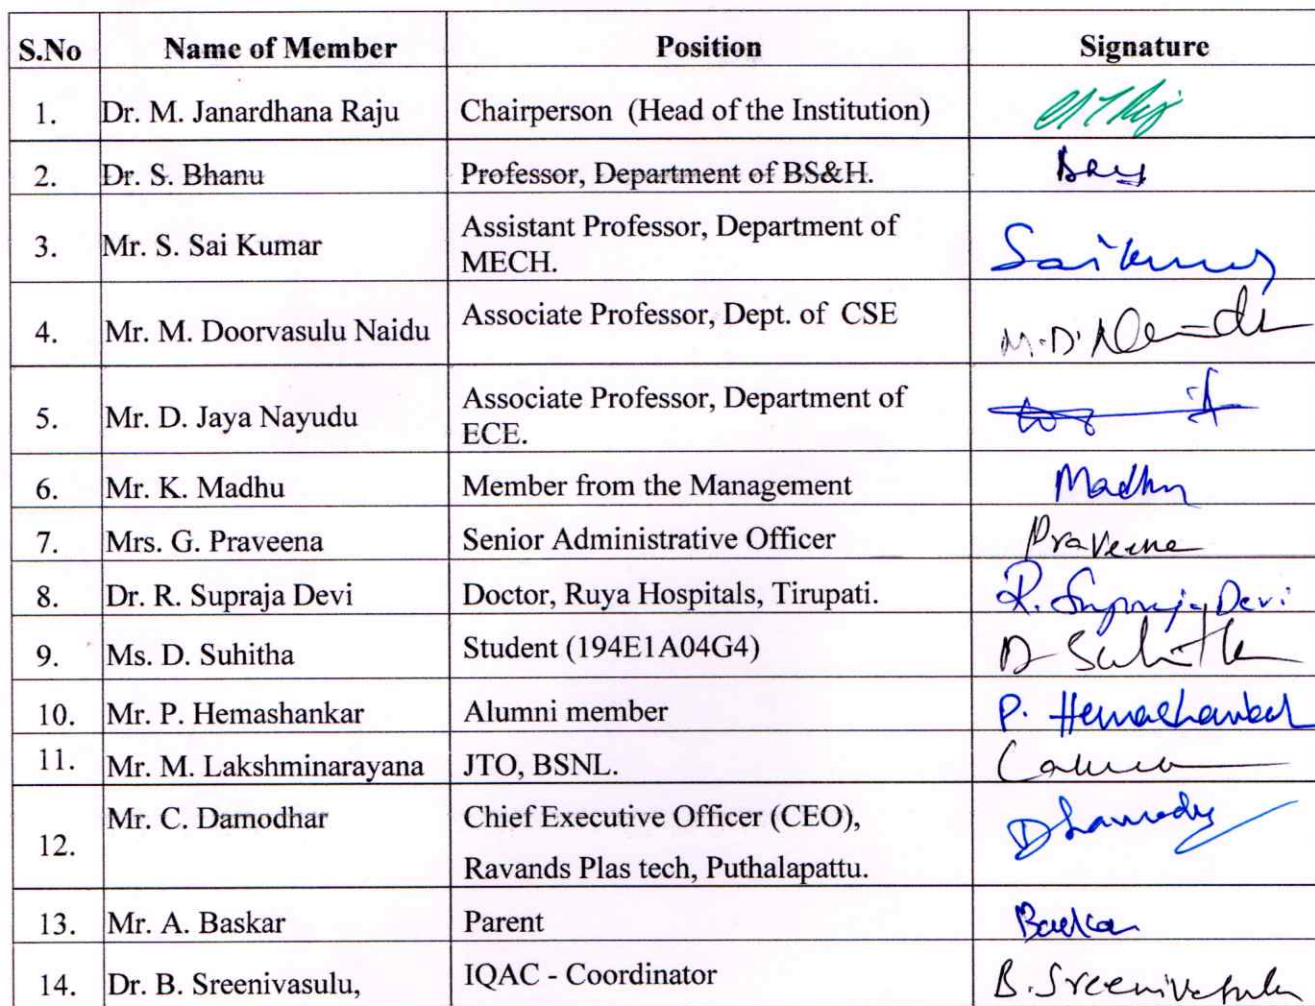 S.No Name of Member Position Signature
1. Dr. M. Janardhana Raju Chairperson (Head of the Institution)
2. Dr. S. Bhanu Professor, Department of BS&H.
3. Mr. S. Sai Kumar Assistant Professor, Department of
MECH. Saikumar
4. Mr. M. Doorvasulu Naidu Associate Professor, Dept. of CSE M.D. Naidu
5. Mr. D. Jaya Nayudu Associate Professor, Department of
ECE.
6. Mr. K. Madhu Member from the Management Madhu
7. Mrs. G. Praveena Senior Administrative Officer Praveena
8. Dr. R. Supraja Devi Doctor, Ruya Hospitals, Tirupati. R. Supraja Devi
9. Ms. D. Suhitha Student (194E1A04G4) D Suhitha
10. Mr. P. Hemashankar Alumni member P. Hemashankar
11. Mr. M. Lakshminarayana JTO, BSNL.
12. Mr. C. Damodhar Chief Executive Officer (CEO),
Ravands Plas tech, Puthalapattu.
13. Mr. A. Baskar Parent Baskar
14. Dr. B. Sreenivasulu, IQAC - Coordinator B. Sreenivasulu